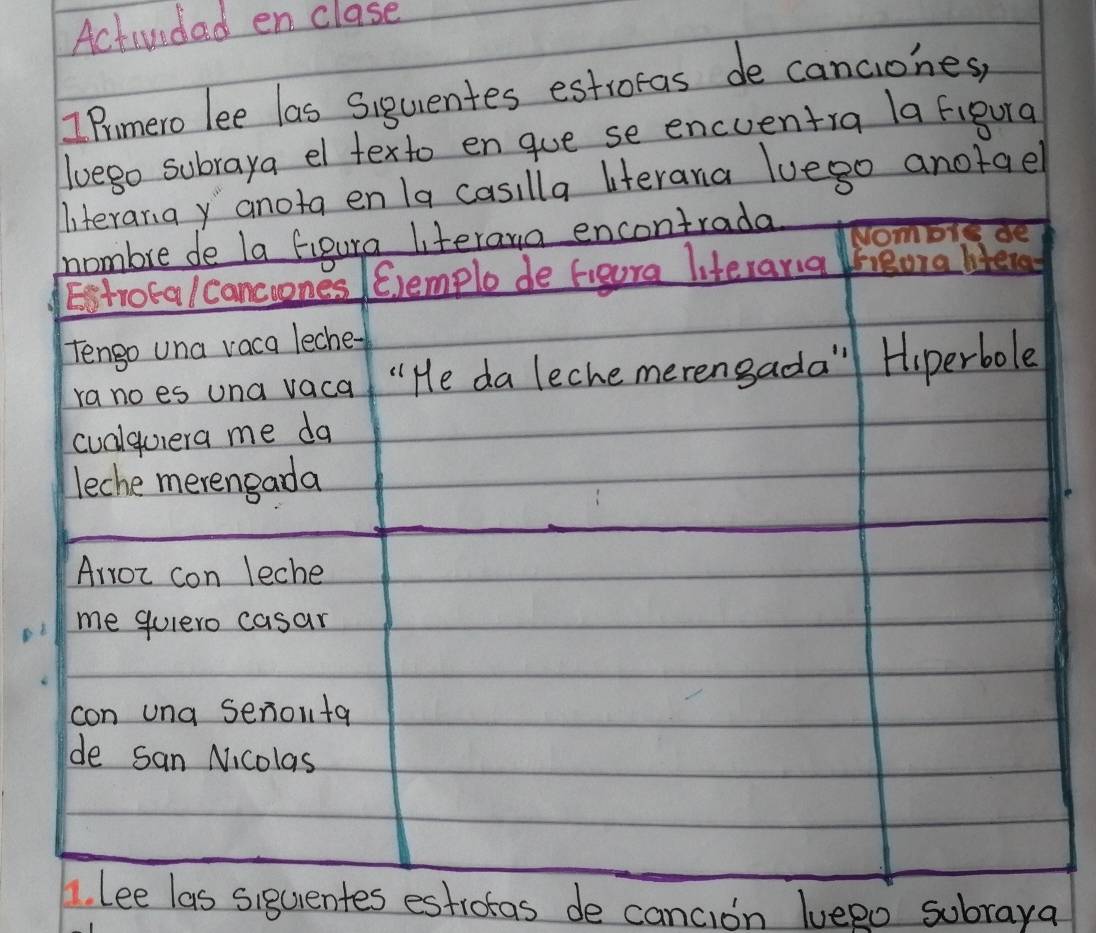 Actividad en clase
1 Primero lee las siguientes estrofas de canciones,
luego subraya el texto en que se encuentra la figura
literaria y anota en la casilla literaria luego anota el
nombre de la figura literaria encontrada.
Estrofa/canciones Ejemplo de figura literaria Nombre de
figura litera-
Tengo una vaca leche-
ra no es una vaca
cualquiera me da
leche merengada
"Me da leche merengada"
Hiperbole
Arroz con leche
me quiero casar
con una señorita
de San Nicolas
1. Lee las siguientes estrofas de canción luego subraya